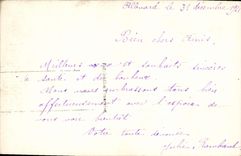 le 31 décembre
Bien chers Amis,
Meilleurs vœux et souhaits sincères
santé et de bonheur
Nous vous embrassons tous bien
affectueusement avec l'espoir de
vous voir bientôt
Votre toute dévouée